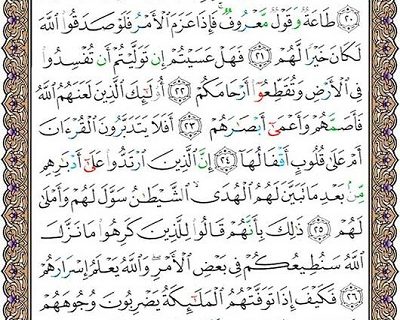 ٢٠ طَاعَةٌ وَقَوْلٌ مَّعْرُوفٌ ۚ فَإِذَا عَزَمَ ٱلْأَمْرُ فَلَوْ صَدَقُوا۟ ٱللَّهَ
لَكَانَ خَيْرًا لَّهُمْ ٢١ فَهَلْ عَسَيْتُمْ إِن تَوَلَّيْتُمْ أَن تُفْسِدُوا۟
فِى ٱلْأَرْضِ وَتُقَطِّعُوٓا۟ أَرْحَامَكُمْ ٢٢ أُو۟لَٰٓئِكَ ٱلَّذِينَ لَعَنَهُمُ ٱللَّهُ
فَأَصَمَّهُمْ وَأَعْمَىٰٓ أَبْصَٰرَهُمْ ٢٣ أَفَلَا يَتَدَبَّرُونَ ٱلْقُرْءَانَ
أَمْ عَلَىٰ قُلُوبٍ أَقْفَالُهَآ ٢٤ إِنَّ ٱلَّذِينَ ٱرْتَدُّوا۟ عَلَىٰٓ أَدْبَٰرِهِم
مِّنۢ بَعْدِ مَا تَبَيَّنَ لَهُمُ ٱلْهُدَى ۙ ٱلشَّيْطَٰنُ سَوَّلَ لَهُمْ وَأَمْلَىٰ
لَهُمْ ٢٥ ذَٰلِكَ بِأَنَّهُمْ قَالُوا۟ لِلَّذِينَ كَرِهُوا۟ مَا نَزَّلَ
ٱللَّهُ سَنُطِيعُكُمْ فِى بَعْضِ ٱلْأَمْرِ ۖ وَٱللَّهُ يَعْلَمُ إِسْرَارَهُمْ
٢٦ فَكَيْفَ إِذَا تَوَفَّتْهُمُ ٱلْمَلَٰٓئِكَةُ يَضْرِبُونَ وُجُوهَهُمْ